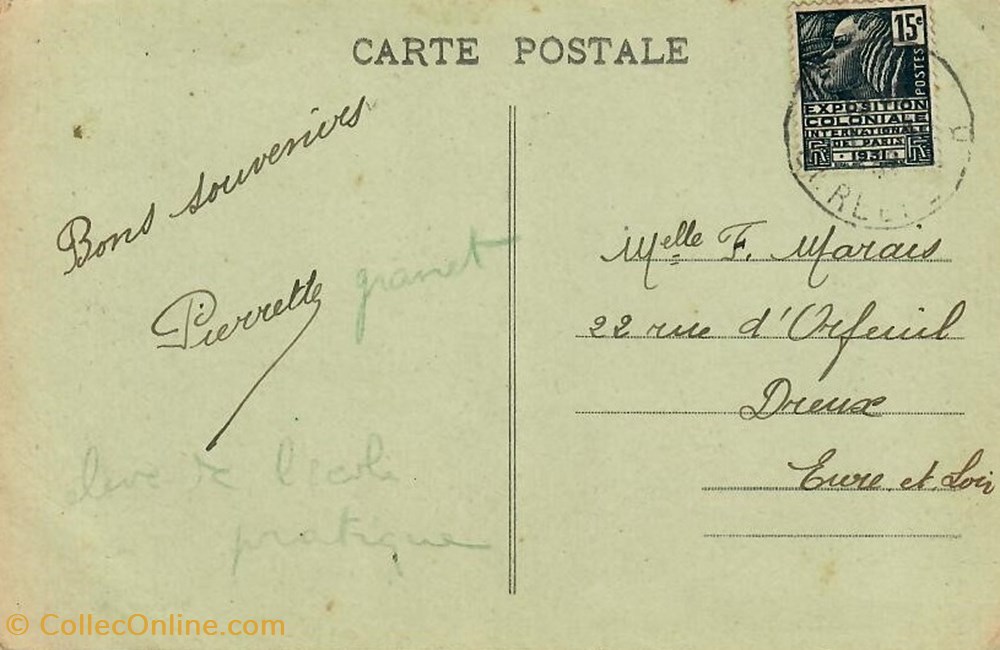 CARTE POSTALE
15c
POSTES
EXPOSITION
COLONIALE
INTERNATIONALE
DE PARIS
1931
Bons souvenirs
Pierrette granet
eleve de l'ecole
pratique
Melle F. Marais
22 rue d'Orfeuil
Dreux
Eure et Loir
© CollecOnline.com